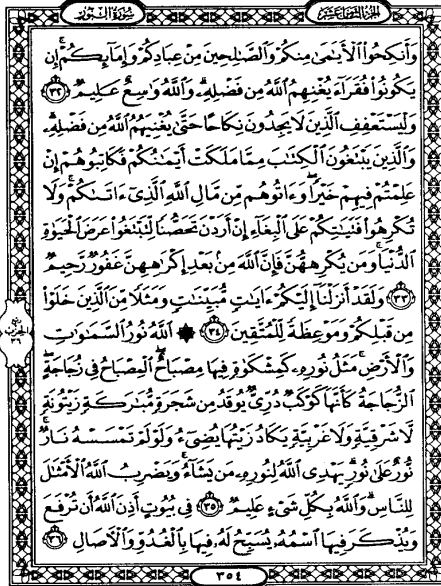 سورة النور
الجزء الثامن عشر
وَأَنكِحُوا۟ ٱلْأَيَـٰمَىٰ مِنكُمْ وَٱلصَّـٰلِحِينَ مِنْ عِبَادِكُمْ وَإِمَآئِكُمْ ۚ إِن
يَكُونُوا۟ فُقَرَآءَ يُغْنِهِمُ ٱللَّهُ مِن فَضْلِهِۦ ۗ وَٱللَّهُ وَٰسِعٌ عَلِيمٌ ٣٢
وَلْيَسْتَعْفِفِ ٱلَّذِينَ لَا يَجِدُونَ نِكَاحًا حَتَّىٰ يُغْنِيَهُمُ ٱللَّهُ مِن فَضْلِهِۦ ۗ
وَٱلَّذِينَ يَبْتَغُونَ ٱلْكِتَـٰبَ مِمَّا مَلَكَتْ أَيْمَـٰنُكُمْ فَكَاتِبُوهُمْ إِنْ
عَلِمْتُمْ فِيهِمْ خَيْرًا ۖ وَءَاتُوهُم مِّن مَّالِ ٱللَّهِ ٱلَّذِىٓ ءَاتَىٰكُمْ ۚ وَلَا
تُكْرِهُوا۟ فَتَيَـٰتِكُمْ عَلَى ٱلْبِغَآءِ إِنْ أَرَدْنَ تَحَصُّنًا لِّتَبْتَغُوا۟ عَرَضَ ٱلْحَيَوٰةِ
ٱلدُّنْيَا ۚ وَمَن يُكْرِههُّنَّ فَإِنَّ ٱللَّهَ مِنۢ بَعْدِ إِكْرَٰهِهِنَّ غَفُورٌ رَّحِيمٌ
٣٣ وَلَقَدْ أَنزَلْنَآ إِلَيْكُمْ ءَايَـٰتٍ مُّبَيِّنَـٰتٍ وَمَثَلًا مِّنَ ٱلَّذِينَ خَلَوْا۟
مِن قَبْلِكُمْ وَمَوْعِظَةً لِّلْمُتَّقِينَ ٣٤ ۞ ٱللَّهُ نُورُ ٱلسَّمَـٰوَٰتِ
وَٱلْأَرْضِ ۚ مَثَلُ نُورِهِۦ كَمِشْكَوٰةٍ فِيهَا مِصْبَاحٌ ۖ ٱلْمِصْبَاحُ فِى زُجَاجَةٍ ۖ
ٱلزُّجَاجَةُ كَأَنَّهَا كَوْكَبٌ دُرِّىٌّ يُوقَدُ مِن شَجَرَةٍ مُّبَـٰرَكَةٍ زَيْتُونَةٍ
لَّا شَرْقِيَّةٍ وَلَا غَرْبِيَّةٍ يَكَادُ زَيْتُهَا يُضِىٓءُ وَلَوْ لَمْ تَمْسَسْهُ نَارٌ ۚ
نُّورٌ عَلَىٰ نُورٍ ۗ يَهْدِى ٱللَّهُ لِنُورِهِۦ مَن يَشَآءُ ۚ وَيَضْرِبُ ٱللَّهُ ٱلْأَمْثَـٰلَ
لِلنَّاسِ ۗ وَٱللَّهُ بِكُلِّ شَىْءٍ عَلِيمٌ ٣٥ فِى بُيُوتٍ أَذِنَ ٱللَّهُ أَن تُرْفَعَ
وَيُذْكَرَ فِيهَا ٱسْمُهُۥ يُسَبِّحُ لَهُۥ فِيهَا بِٱلْغُدُوِّ وَٱلْـَٔاصَالِ ٣٦
٣٥٤